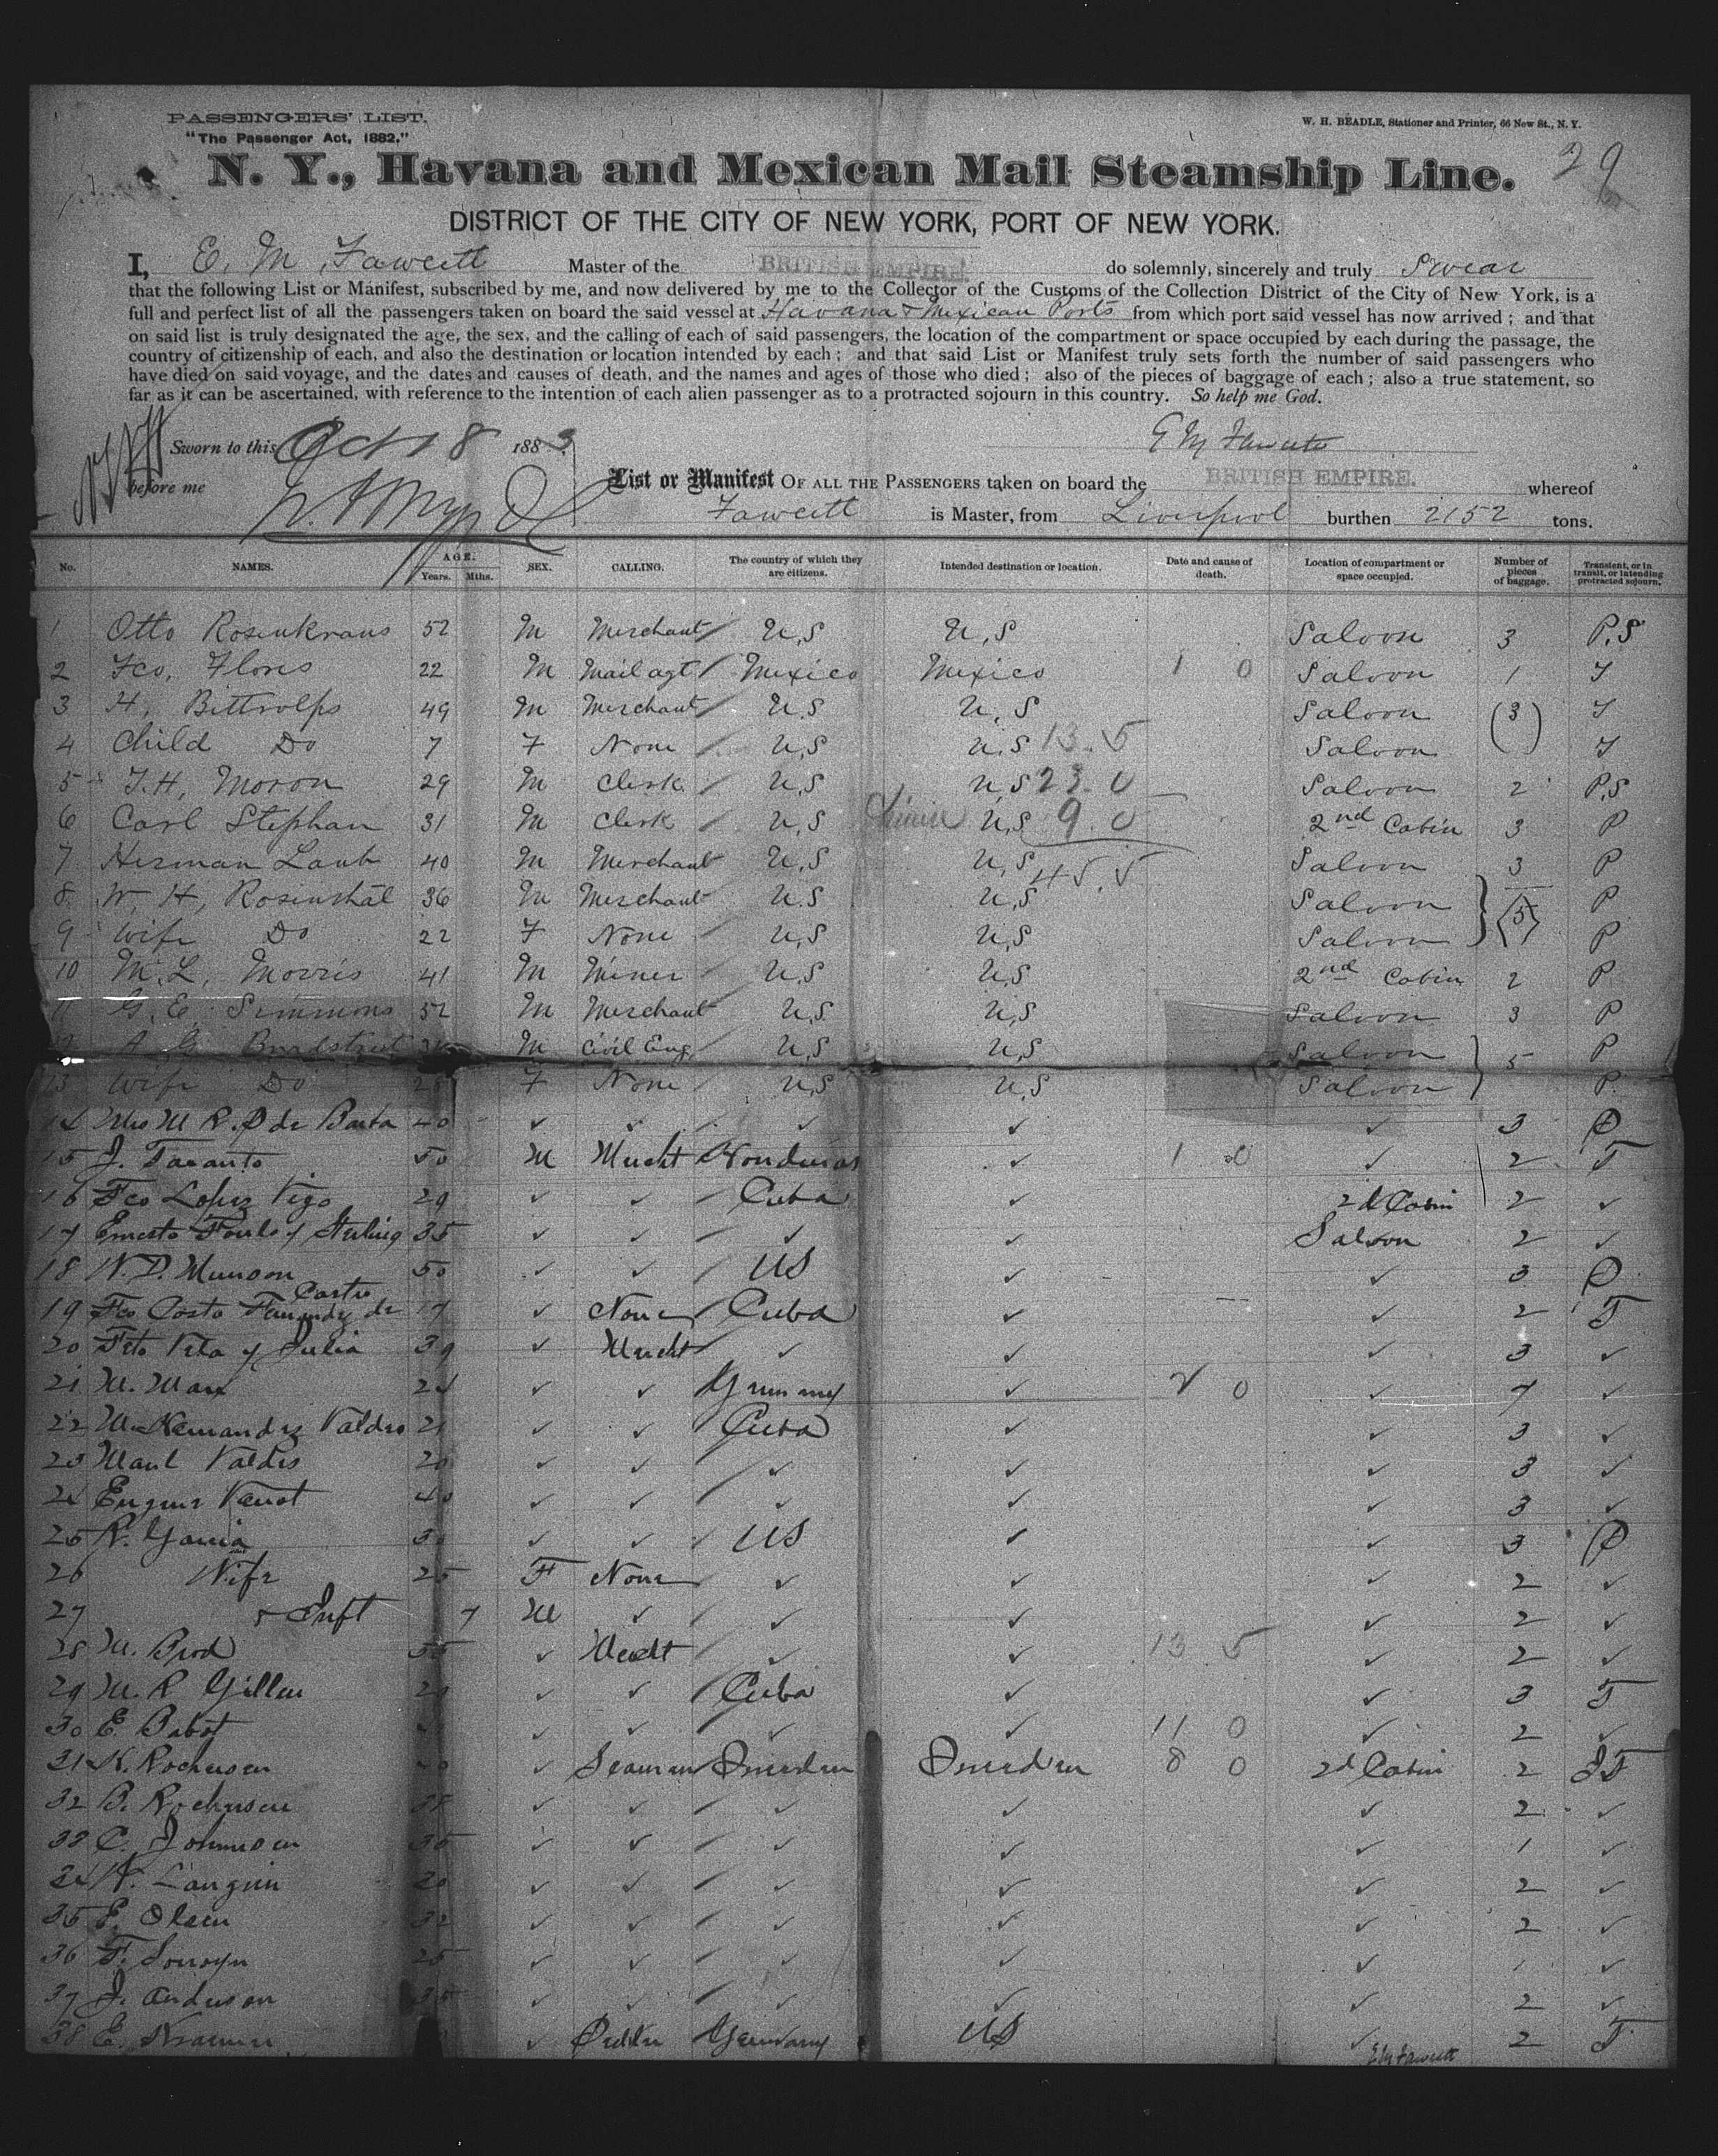 PASSENGERS' LIST.
"The Passenger Act, 1882."
W. H. BEADLE, Stationer and Printer, 66 New St., N. Y.
29
N. Y., Havana and Mexican Mail Steamship Line.
DISTRICT OF THE CITY OF NEW YORK, PORT OF NEW YORK.
I, E. M. Fawcett Master of the BRITISH EMPIRE. do solemnly, sincerely and truly Swear
that the following List or Manifest, subscribed by me, and now delivered by me to the Collector of the Customs of the Collection District of the City of New York, is a
full and perfect list of all the passengers taken on board the said vessel at Havana & Mexican Ports from which port said vessel has now arrived; and that
on said list is truly designated the age, the sex, and the calling of each of said passengers, the location of the compartment or space occupied by each during the passage, the
country of citizenship of each, and also the destination or location intended by each; and that said List or Manifest truly sets forth the number of said passengers who
have died on said voyage, and the dates and causes of death, and the names and ages of those who died; also of the pieces of baggage of each; also a true statement, so
far as it can be ascertained, with reference to the intention of each alien passenger as to a protracted sojourn in this country. So help me God.
Sworn to this Oct 18 1883 E M Fawcett
before me
List or Manifest OF ALL THE PASSENGERS taken on board the BRITISH EMPIRE. whereof
Fawcett is Master, from Liverpool burthen 2152 tons.
No. NAMES. AGE. Years. Mths. SEX. CALLING. The country of which they are citizens. Intended destination or location. Date and cause of death. Location of compartment or space occupied. Number of pieces of baggage. Transient, or in transit, or intending protracted sojourn.
1 Otto Rosenkrans 52 M Merchant U,S U,S Saloon 3 P.S
2 Fco, Flores 22 M Mail agt Mexico Mexico 1 0 Saloon 1 T
3 H, Bittrolps 49 M Merchant U.S U,S Saloon (3) T
4 Child Do 7 F None U,S U.S 13.5 Saloon T
5 T.H, Moron 29 M Clerk U,S U,S 23.0 Saloon 2 P,S
6 Carl Stephan 31 M Clerk U,S U,S 9.0 2nd Cabin 3 P
7 Herman Laub 40 M Merchant U,S U,S 45.5 Saloon 3 P
8 W, H, Rosinthal 36 M Merchant U.S U,S Saloon (5) P
9 Wife Do 22 F None U,S U,S Saloon P
10 M.L, Morris 41 M Miner U,S U,S 2nd Cabin 2 P
11 G, E, Simmons 52 M Merchant U,S U,S Saloon 3 P
12 A G Bradstreet M Civil Eng, U,S U,S Saloon 5 P
13 Wife Do 25 F None U,S U,S Saloon P.
14 Mrs M R. P de Barba 40 ✓ ✓ ✓ ✓ ✓ 3 P
15 J. Taranto 50 M Mercht Honduras ✓ 1 0 ✓ 2 T
16 Fco Lopez Vigo 29 ✓ ✓ Cuba ✓ 2d Cabin 2 ✓
17 Ernesto Fouls y Sterling 35 ✓ ✓ ✓ ✓ Saloon 2 ✓
18 W. D. Munson 50 ✓ ✓ US ✓ ✓ 3 P
19 Fco Costa Fernandez de Castro 17 ✓ None Cuba ✓ ✓ 2 T
20 Fto Vela y Julia 39 ✓ Mercht ✓ ✓ ✓ 3 ✓
21 M. Marx 24 ✓ ✓ Germany ✓ 2 0 ✓ 7 ✓
22 M Hernandez Valdes 21 ✓ ✓ Cuba ✓ ✓ 3 ✓
23 Manl Valdes 20 ✓ ✓ ✓ ✓ ✓ 3 ✓
24 Eugene 40 ✓ ✓ ✓ ✓ ✓ 3 ✓
25 R. Garcia 30 ✓ ✓ US ✓ ✓ 3 P
26 Wife 25 F None ✓ ✓ ✓ 2 ✓
27 & Inft 7 M ✓ ✓ ✓ ✓ 2 ✓
28 M. Brod 55 ✓ Mercht ✓ ✓ 13 5 ✓ 2 ✓
29 M. R Gillen ✓ ✓ Cuba ✓ ✓ 3 T
30 E. Babot ✓ ✓ ✓ ✓ 11 0 ✓ 2 ✓
31 K. Rochusen ✓ Seaman Sweden Sweden 8 0 2d Cabin 2 T
32 B. Rochusen ✓ ✓ ✓ ✓ ✓ 2 ✓
33 C. Johnson 35 ✓ ✓ ✓ ✓ ✓ 1 ✓
34 20 ✓ ✓ ✓ ✓ ✓ 2 ✓
35 E. Olsen 32 ✓ ✓ ✓ ✓ ✓ 2 ✓
36 F. 25 ✓ ✓ ✓ ✓ ✓ ✓
37 J. Anderson 35 ✓ ✓ ✓ ✓ ✓ 2 ✓
38 E. Kramer ✓ Germany US ✓ 2 T
E M Fawcett